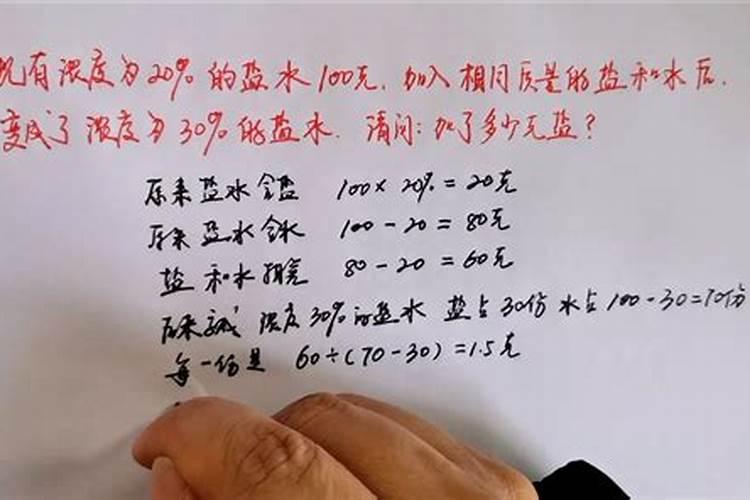 现有浓度为20%的盐水100克,加入相同质量的盐和水后,
变成了浓度为30%的盐水.请问:加了多少克盐?
原来盐水含盐 100×20%=20克
原来盐水含水 100-20=80克
盐和水相差 80-20=60克
后来变成 浓度30%的盐水 盐占30份 水占100-30=70份
每一份是 60÷(70-30)=1.5克